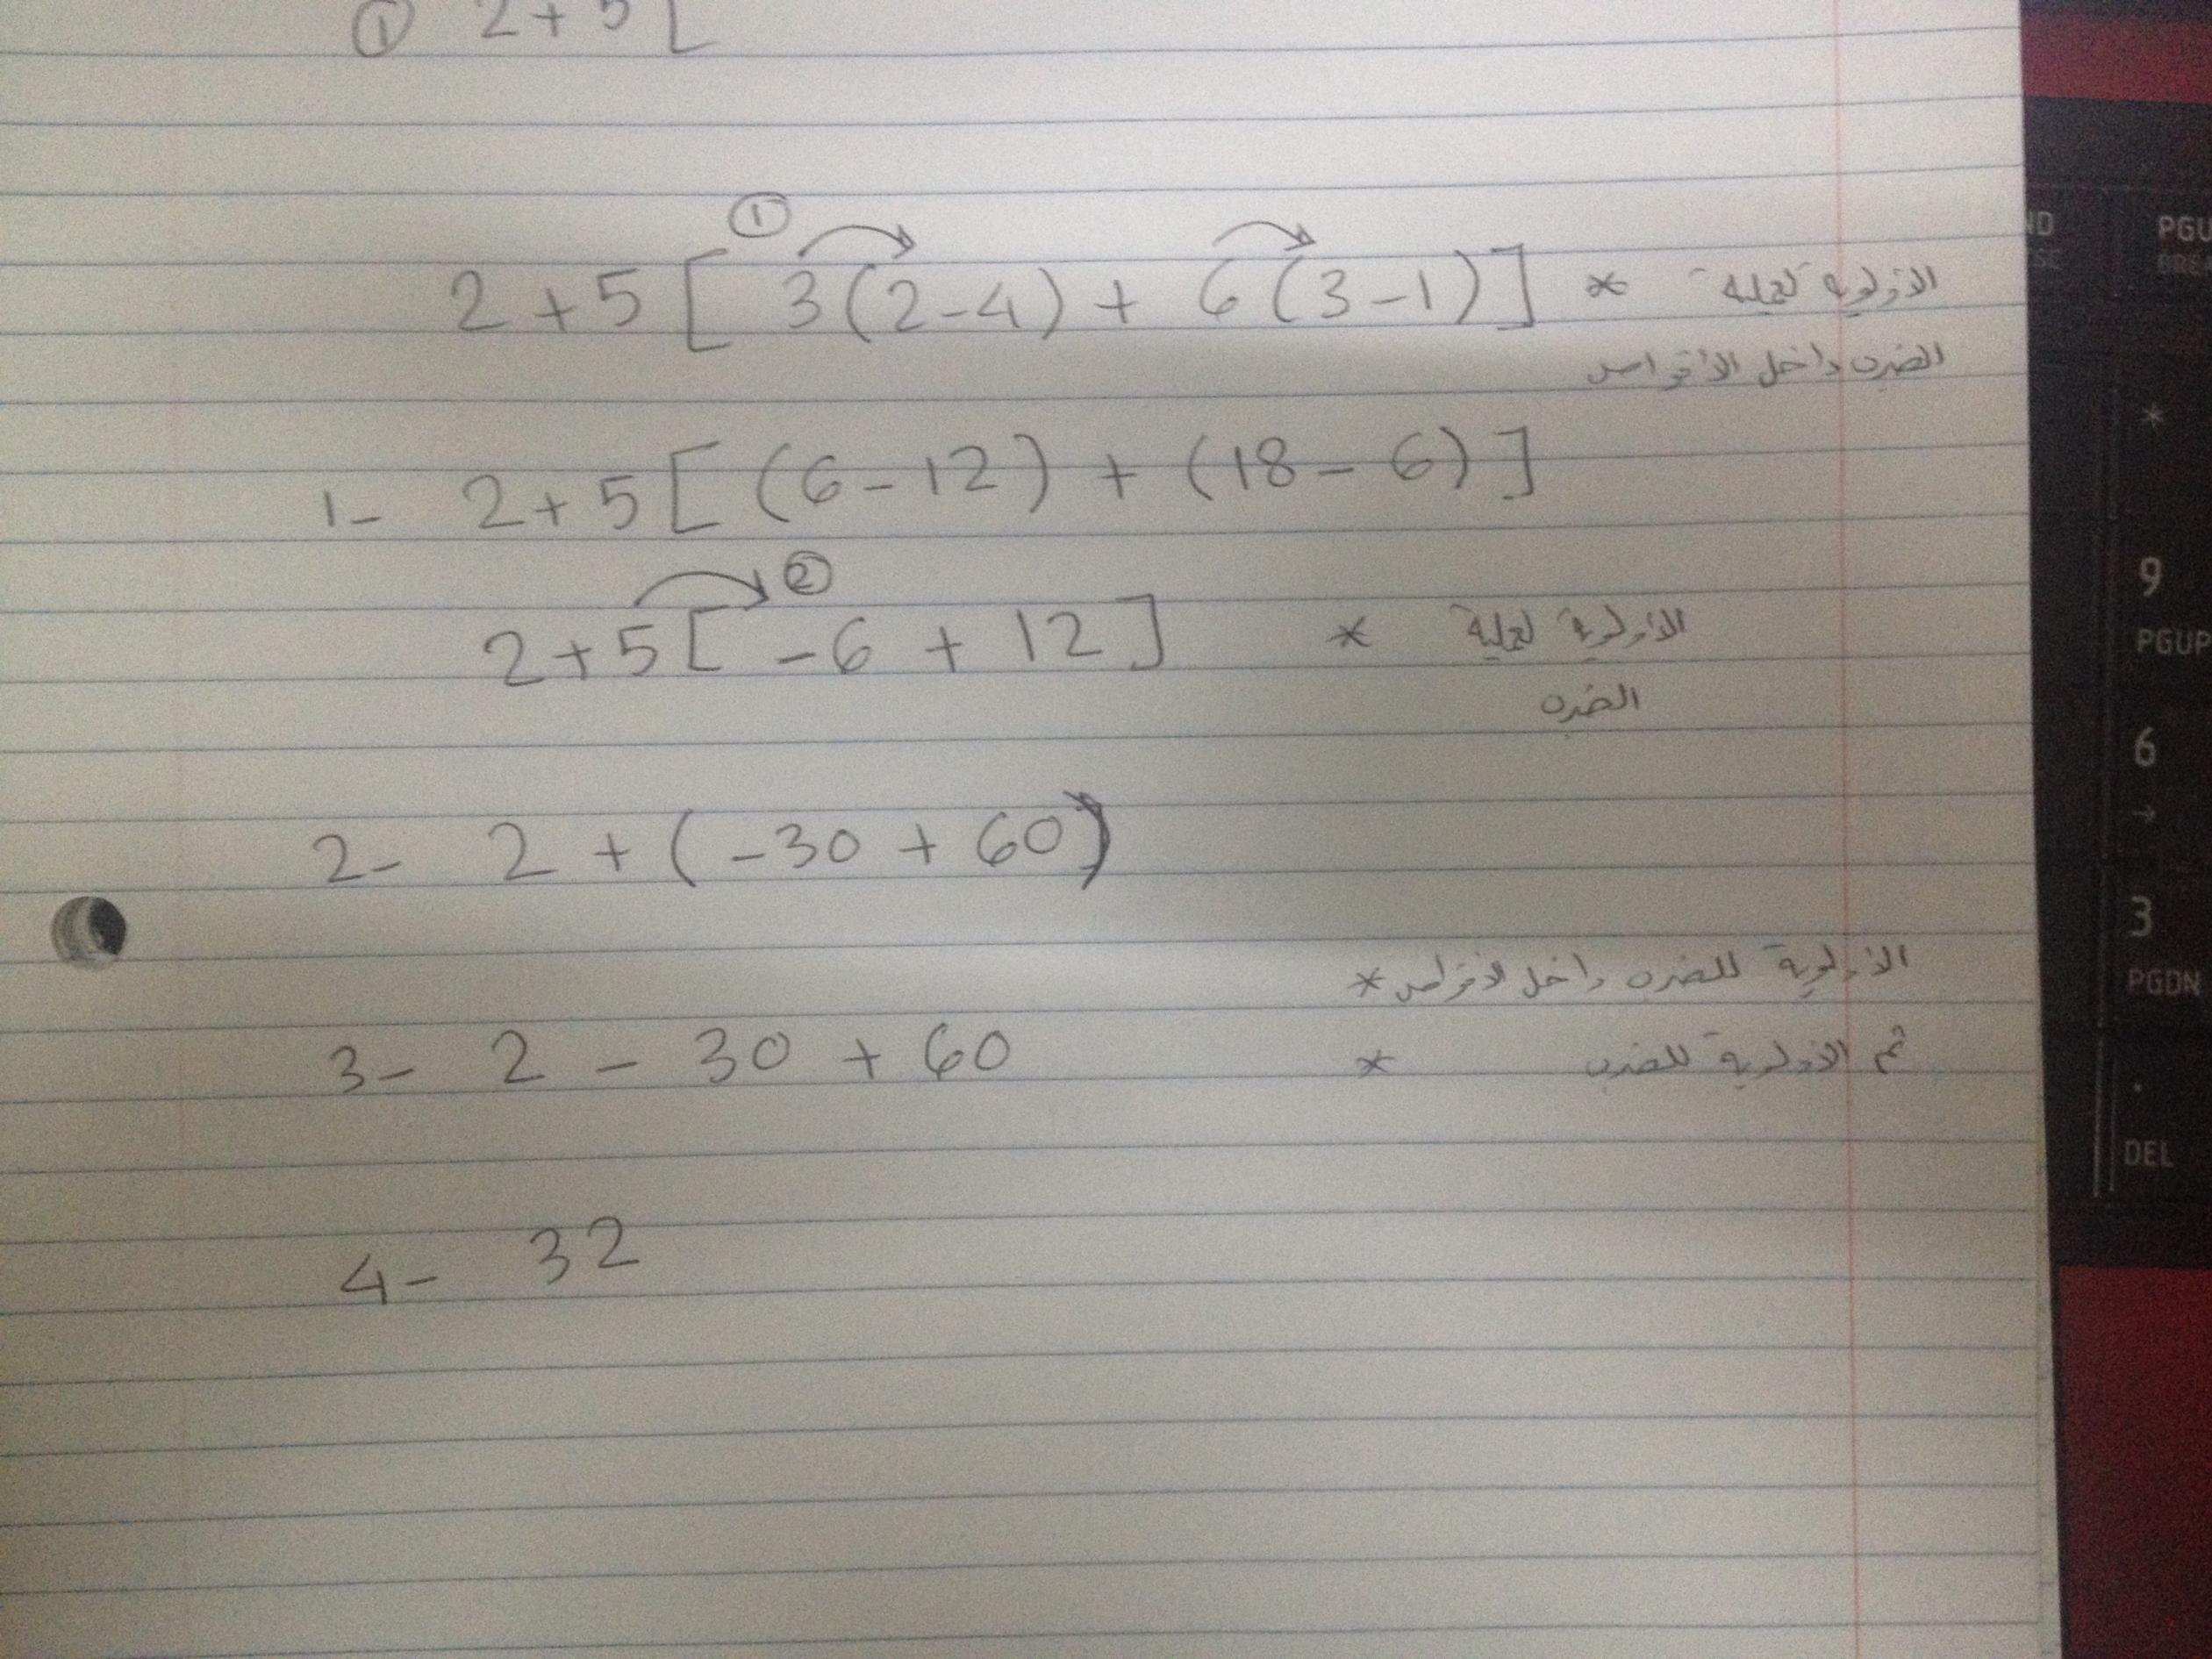 ① 2 + 5 [
①
2 + 5 [ 3 ( 2 - 4 ) + 6 ( 3 - 1 ) ] * الأولوية لعملية
الضرب داخل الأقواس
1- 2 + 5 [ ( 6 - 12 ) + ( 18 - 6 ) ]
②
2 + 5 [ - 6 + 12 ] * الأولوية لعملية
الضرب
2- 2 + ( - 30 + 60 )
الأولوية للضرب داخل الأقواس *
3- 2 - 30 + 60 * ثم الأولوية للضرب
4- 32
PGU
*
9
PGUP
6
→
3
PGDN
.
DEL